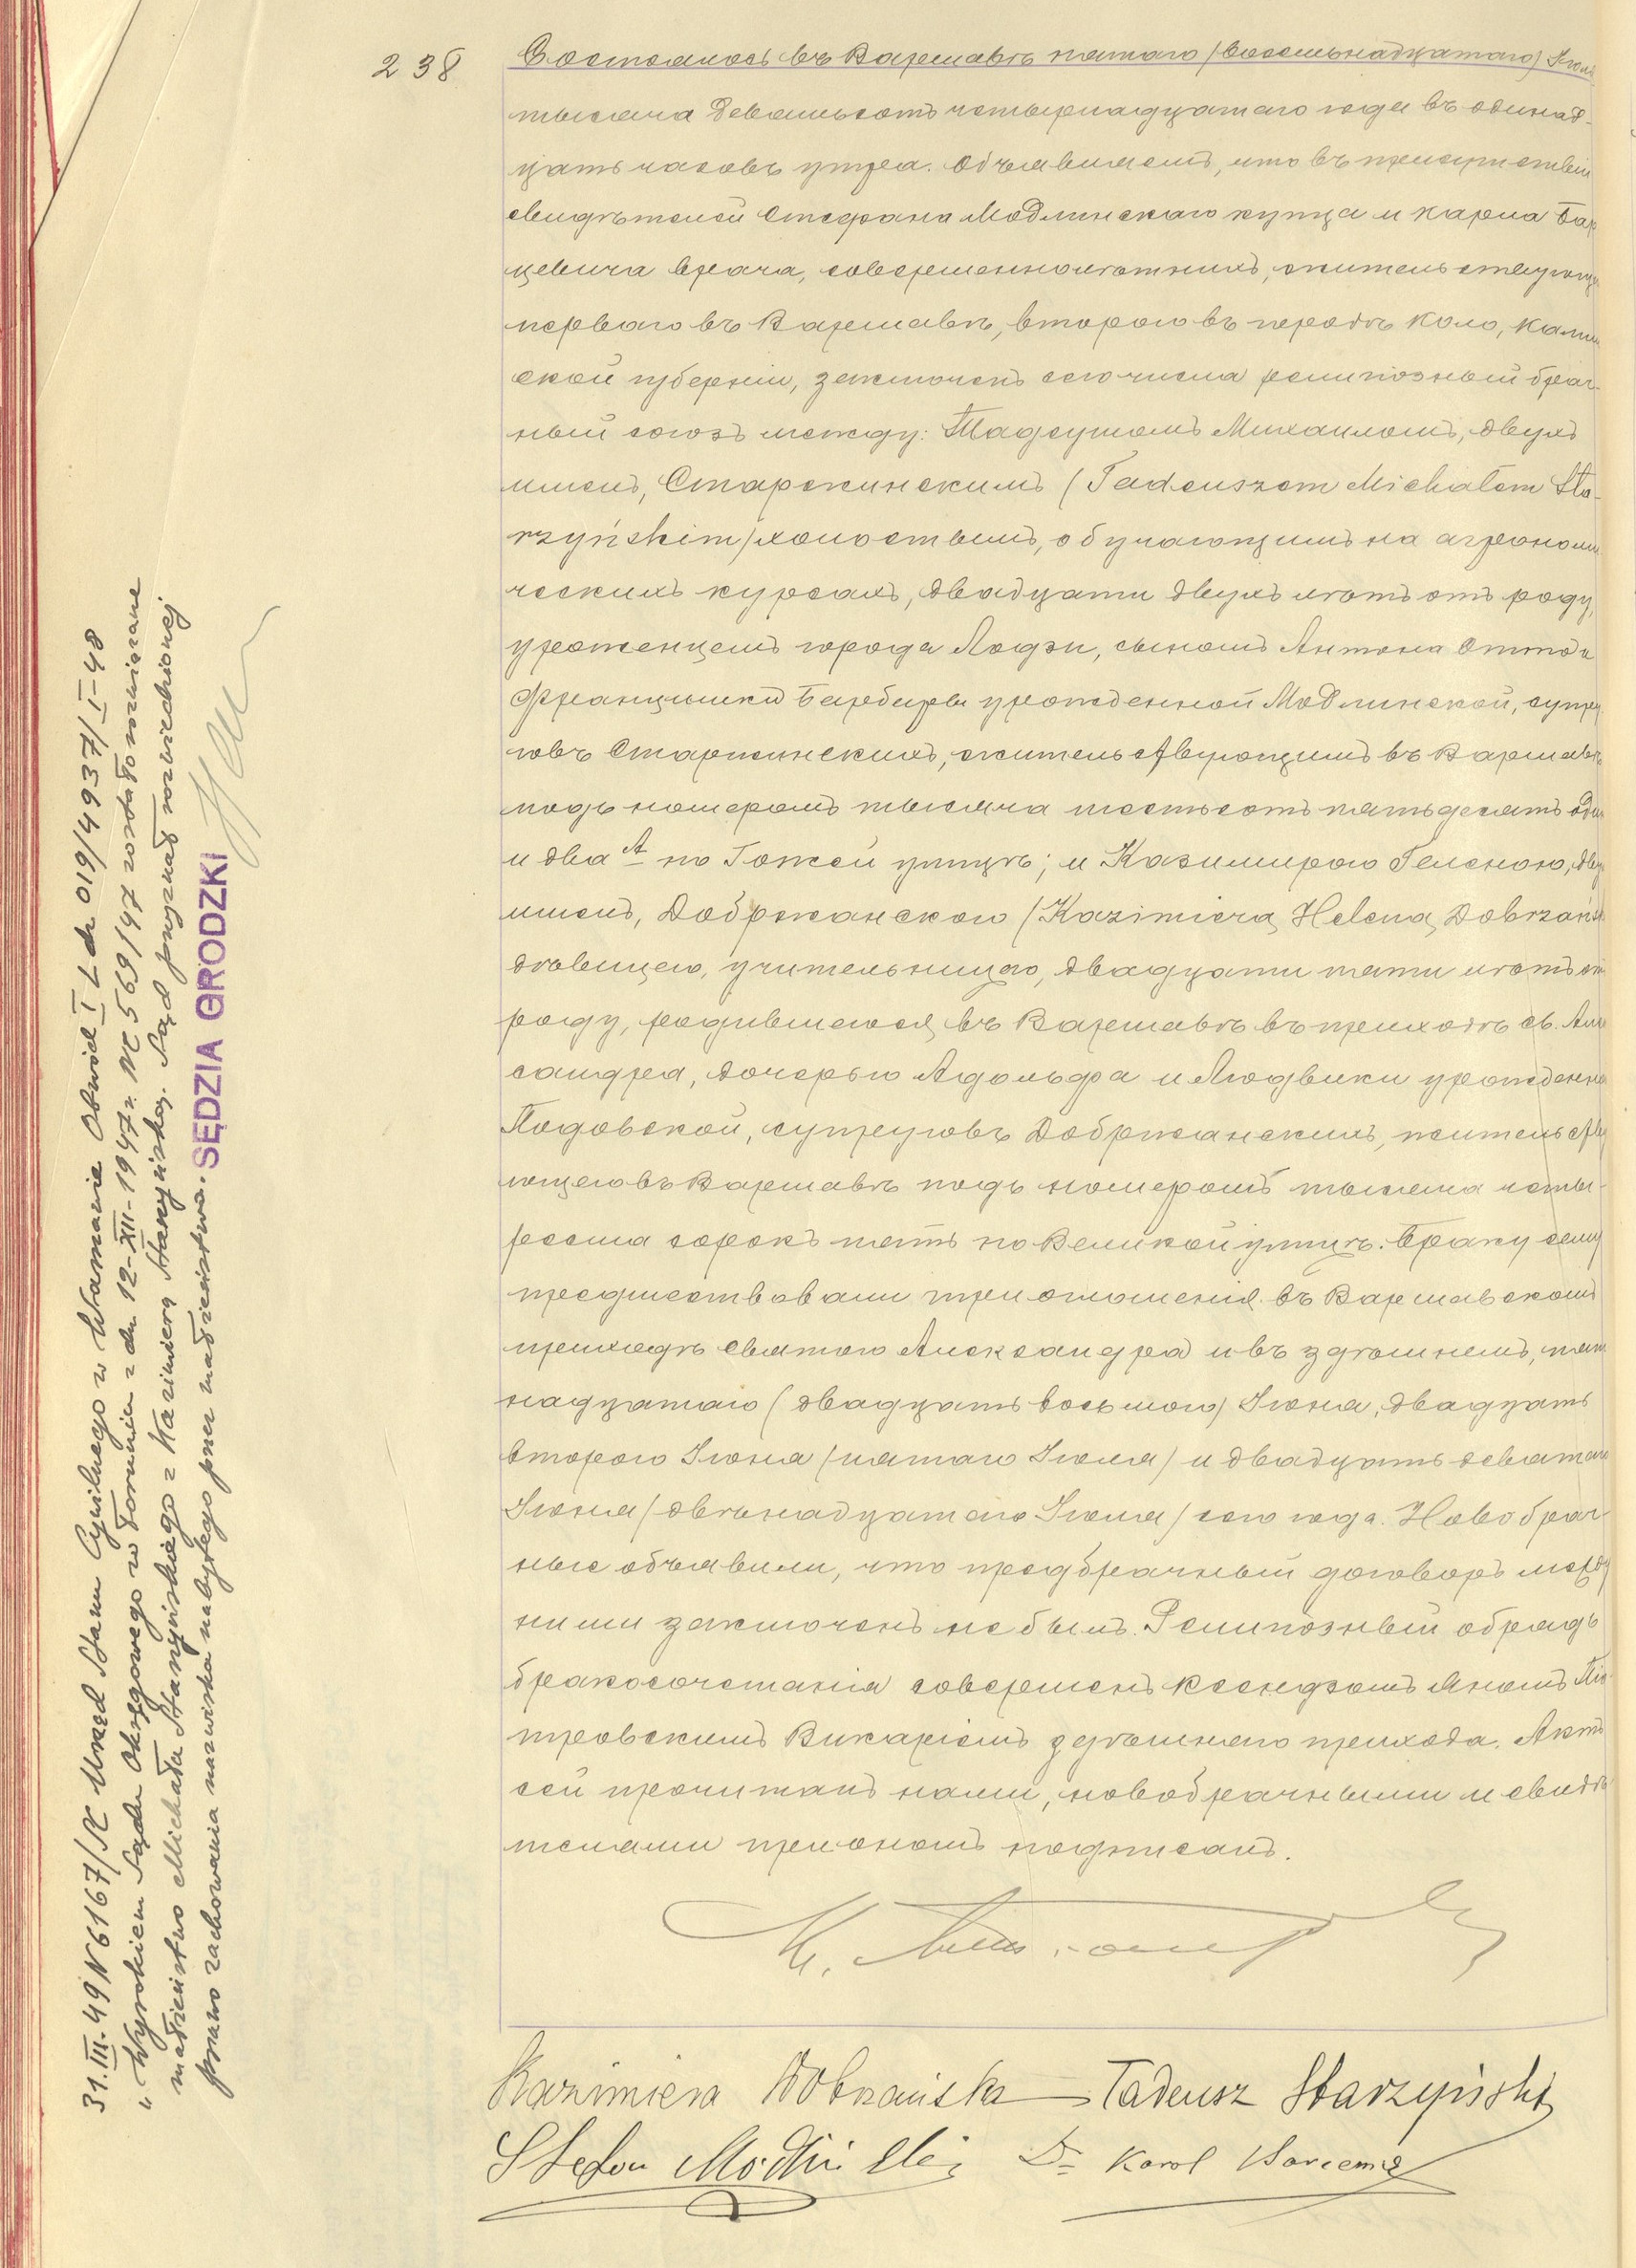 238
Состоялось въ Варшавѣ пятаго /восемьнадцатаго/ Іюля
тысяча девятьсотъ четырнадцатаго года въ одинад-
цать часовъ утра. Объявляемъ, что въ присутствіи
свидѣтелей Стефана Модлинскаго купца и Карла Бар
цевича врача, совершеннолѣтнихъ, жительствующихъ
перваго въ Варшавѣ, второго въ городѣ Коло, Калиш
ской губерніи, заключенъ сего числа религіозный брач-
ный союзъ между: Тадеушомъ Михаиломъ, двухъ
именъ, Старжинскимъ (Tadeuszem Michałem Sta-
rzyńskim/ холостымъ, обучающимся на агрономи
ческихъ курсахъ, двадцати двухъ лѣтъ отъ роду,
уроженцемъ города Лодзи, сыномъ Антона Отто и
Францишки Барбары урожденной Модлинской, супру
говъ Старжинскихъ, жительствующимъ въ Варшавѣ
подъ номеромъ тысяча шестьсотъ пятьдесятъ один
и два А по Гожей улицѣ; и Казимирою Геленою, двух
именъ, Добржанскою /Kazimierą Heleną Dobrzańsk
дѣвицею, учительницею, двадцати пяти лѣтъ отъ
роду, родившеюся въ Варшавѣ въ приходѣ св. Алек
сандра, дочерью Адольфа и Людвики урожденной
Подовской, супруговъ Добржанскихъ, жительству
ющею въ Варшавѣ подъ номеромъ тысяча четы-
реста сорокъ пять по Великой улицѣ. Браку сему
предшествовали три оглашенія въ Варшавскомъ
приходѣ Святого Александра и въ здѣшнемъ, пят
надцатаго (двадцать восьмого) Іюня, двадцать
второго Іюня /пятаго Іюля/ и двадцать девятаго
Іюня /двѣнадцатаго Іюля/ сего года. Новобрач-
ные объявили, что предбрачный договоръ между
ними заключенъ не былъ. Религіозный обрядъ
бракосочетанія совершенъ Ксендзомъ Яномъ Пио
тровскимъ Викаріемъ здѣшняго прихода. Актъ
сей прочитанъ нами, новобрачными и свидѣ
телями при ономъ подписанъ.
Kazimiera Dobrzańska Tadeusz Starzyński
Stefan Modliński Dr Karol Barcewicz
31.III.49 N 6167/R Urząd Stanu Cywilnego w Warszawie Obwód I L dz 019/4937/I-48
"Wyrokiem Sądu Okręgowego w Toruniu z dn 12-XII-1947 r. Nr 569/47 zostało rozwiązane
małżeństwo Michała Starzyńskiego z Kazimierą Starzyńską. Sąd przyznał rozwiedzionej
prawo zachowania nazwiska nabytego przez małżeństwo. SĘDZIA GRODZKI